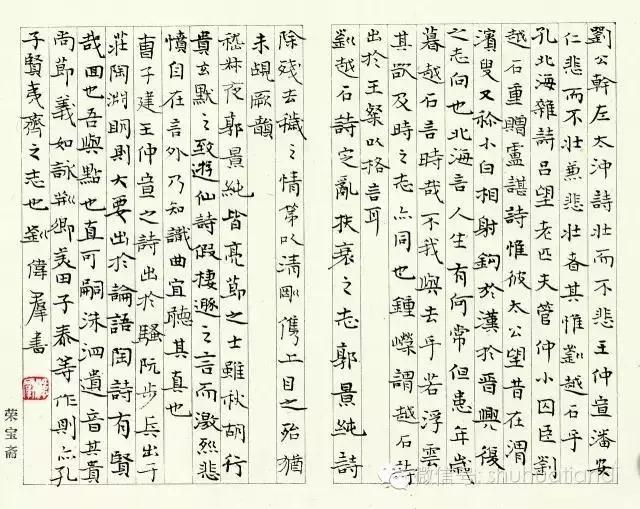 劉公幹左太沖詩壯而不悲王仲宣潘安
仁悲而不壯兼悲壯者其惟劉越石乎
孔北海雜詩呂望老匹夫管仲小囚臣劉
越石重贈盧諶詩惟彼太公望昔在渭
濱叟又称小白相射鉤於漢於晉興復
之志同也北海言人生有何常但患年歲
暮越石言時哉不我與去乎若浮雲
其欲及時之志亦同也鍾嶸謂越石詩
出於王粲以格言耳
劉越石詩定亂扶衰之志郭景純詩
除殘去穢之情第以清剛儁上目之殆猶
未覘厥韻
嵇叔夜郭景純皆亮節之士雖秋胡行
貴玄默之致遊仙詩假棲遯之言而激烈悲
憤自在言外乃知識曲宜聽其真也
曹子建王仲宣之詩出於騷阮步兵出于
莊陶淵明則大要出於論語陶詩有賢
哉回也吾與點也直可嗣洙泗遺音其貴
尚節義如詠荊卿美田子泰等作則亦孔
子賢夷齊之志也劉偉群書
荣宝斋
微信号: shuhuatiandi